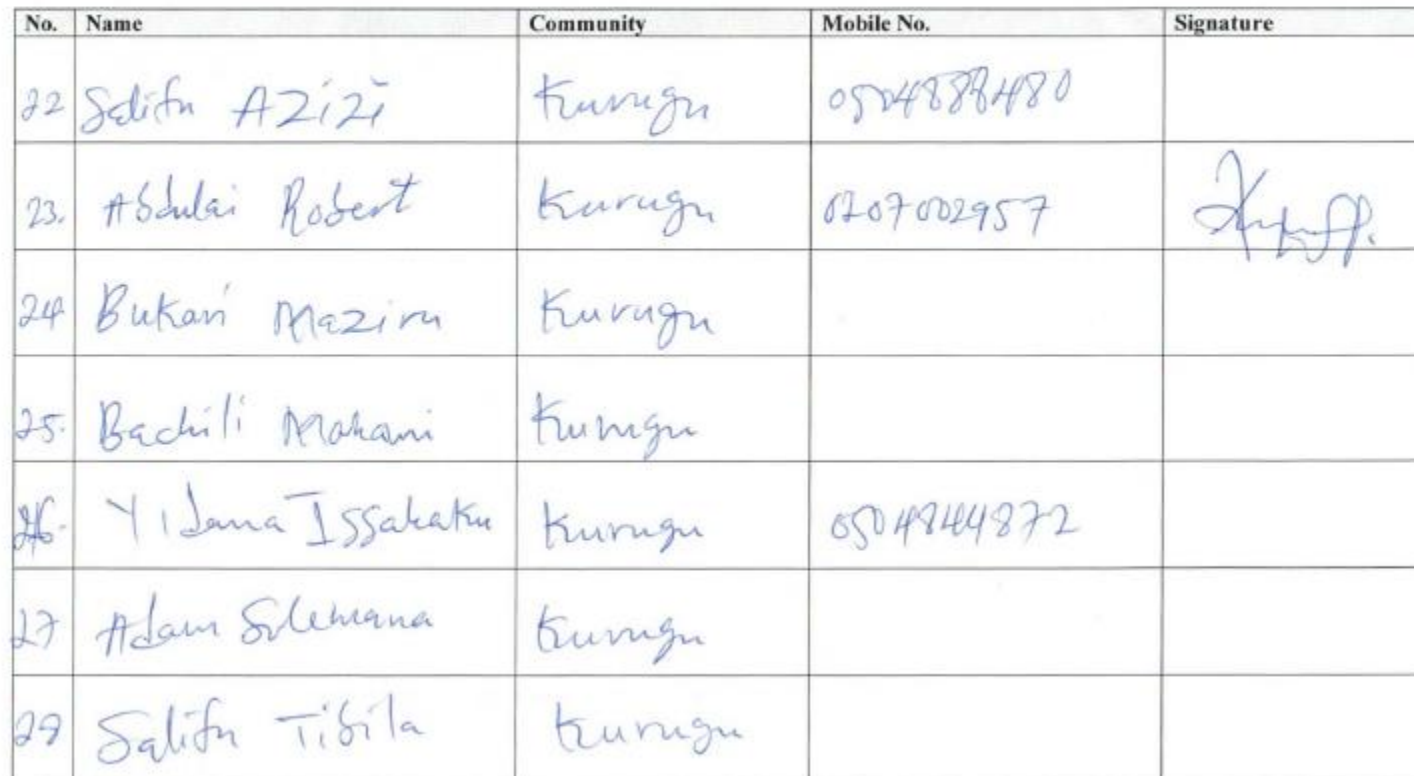 No. Name Community Mobile No. Signature
22 Salifu AZIZI Kurugu 0504888480
23. Abdulai Robert Kurugu 0207002957
24 Bukari Maziru Kurugu
25. Bachili Mohani Kurugu
26. Yidana Issahaku Kurugu 0504844872
27 Adam Sulemana Kurugu
Salifu Tibila Kurugu